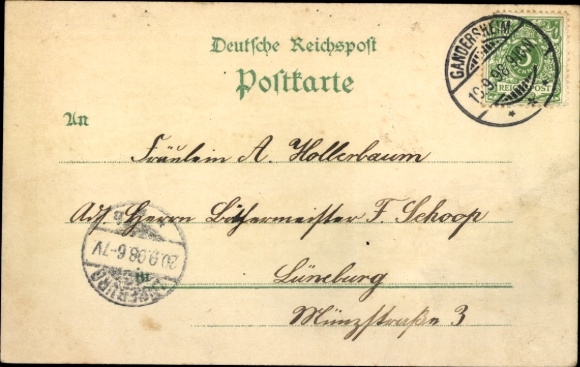 Deutsche Reichspost
Postkarte
GANDERSHEIM
19.9.98.
REICHSPOST
An
Fräulein A. Hollerbaum
Adr. Herrn Böthermeister F. Schoop
20.9.98.6-7V
LÜNEBURG
in
Lüneburg
Münzstraße 3